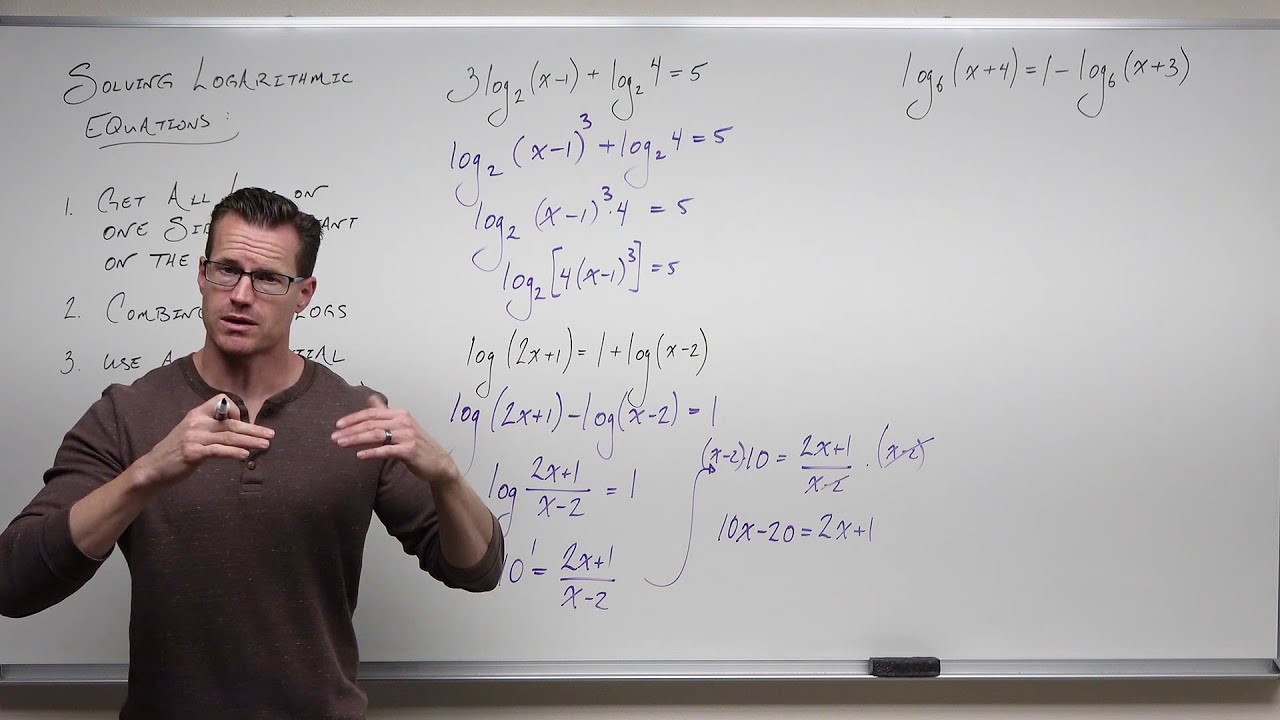 SOLVING LOGARITHMIC
EQUATIONS:
1. GET ALL ON
ONE
ON THE
2. LOGS
3. USE A
3log₂(x-1) + log₂4 = 5
log₂(x-1)³ + log₂4 = 5
log₂(x-1)³·4 = 5
log₂[4(x-1)³] = 5
log(2x+1) = 1 + log(x-2)
log(2x+1) - log(x-2) = 1
log (2x+1)/(x-2) = 1
10¹ = (2x+1)/(x-2)
(x-2)·10 = (2x+1)/(x-2) · (x-2)
10x-20 = 2x+1
log₆(x+4) = 1 - log₆(x+3)